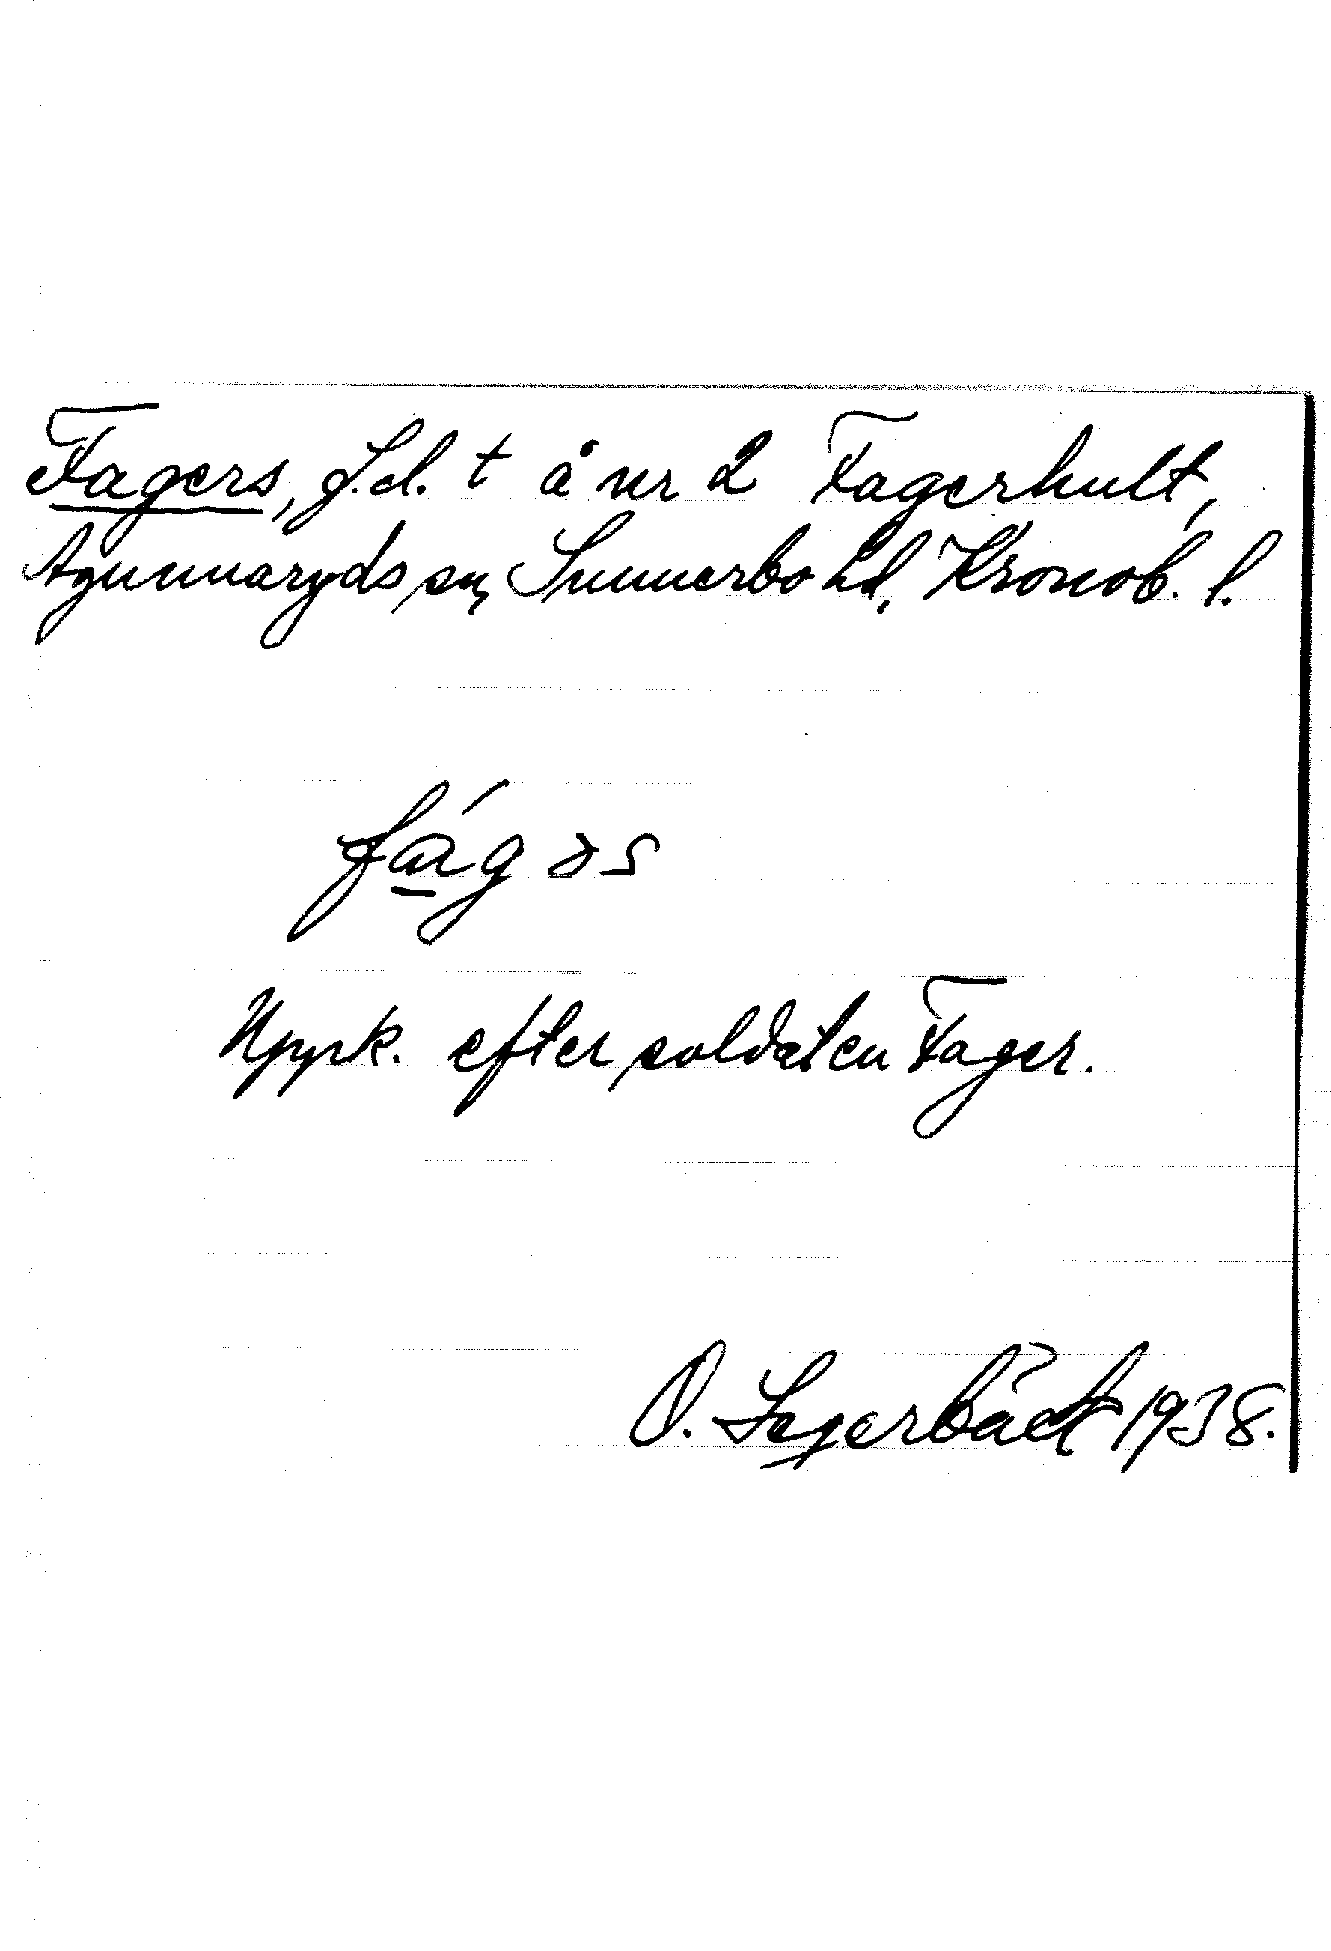 Fagers, f.d. t å nr 2 Fagerhult,
Agunnaryds sn, Sunnerbo hd, Kronob. l.
fágəs
Uppk. efter soldaten Fager.
O. Segerbäck 1938.